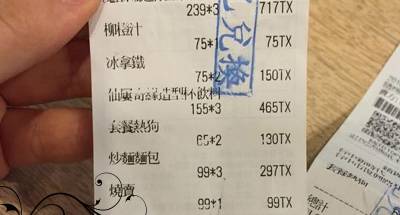 239*3 717TX
柳橙汁
75*1 75TX
冰拿鐵
75*2 150TX
造型杯飲料
155*3 465TX
套餐熱狗
65*2 130TX
炒麵麵包
99*3 297TX
燒賣
99*1 99TX
兌換